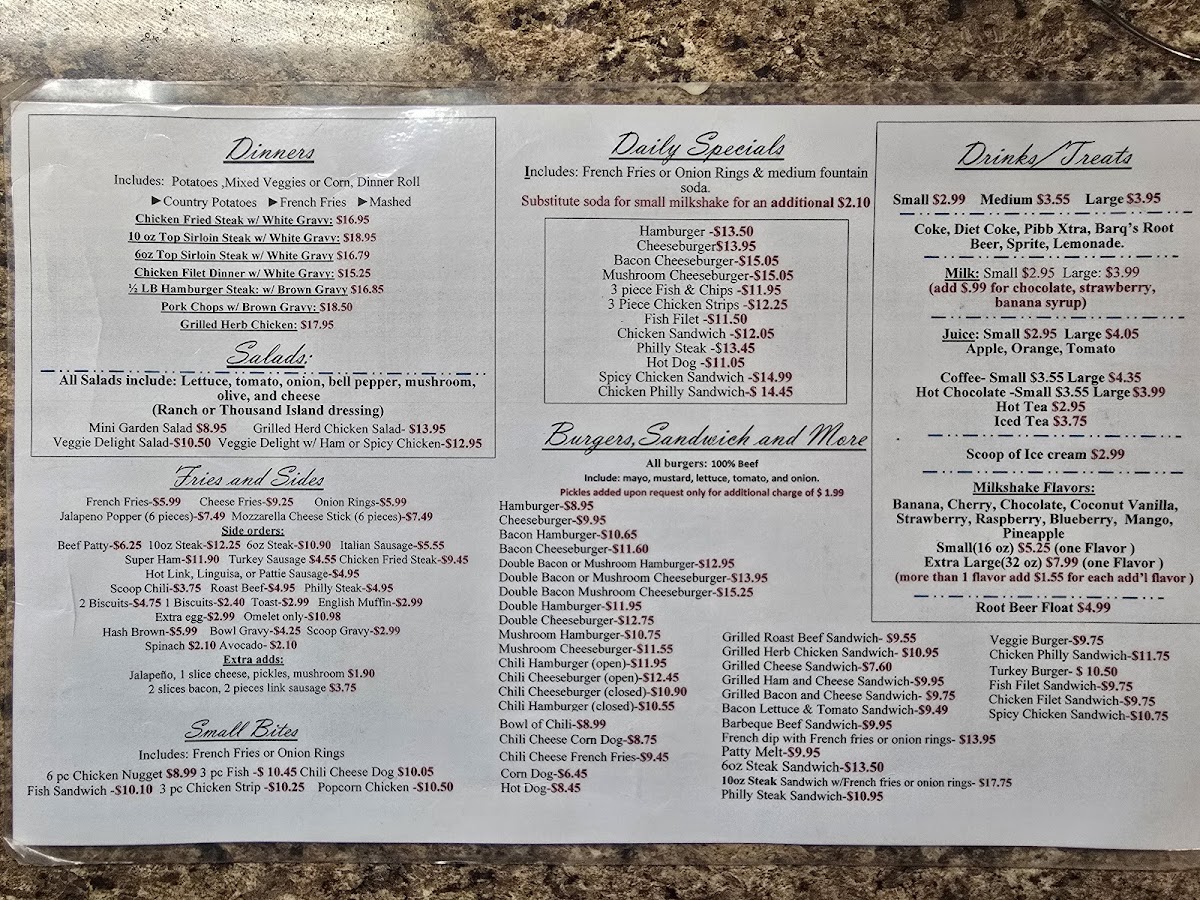 Dinners
Includes: Potatoes ,Mixed Veggies or Corn, Dinner Roll
►Country Potatoes ►French Fries ►Mashed
Chicken Fried Steak w/ White Gravy: $16.95
10 oz Top Sirloin Steak w/ White Gravy: $18.95
6oz Top Sirloin Steak w/ White Gravy $16.79
Chicken Filet Dinner w/ White Gravy: $15.25
½ LB Hamburger Steak: w/ Brown Gravy $16.85
Pork Chops w/ Brown Gravy: $18.50
Grilled Herb Chicken: $17.95
Salads:
All Salads include: Lettuce, tomato, onion, bell pepper, mushroom,
olive, and cheese
(Ranch or Thousand Island dressing)
Mini Garden Salad $8.95 Grilled Herd Chicken Salad- $13.95
Veggie Delight Salad-$10.50 Veggie Delight w/ Ham or Spicy Chicken-$12.95
Fries and Sides
French Fries-$5.99 Cheese Fries-$9.25 Onion Rings-$5.99
Jalapeno Popper (6 pieces)-$7.49 Mozzarella Cheese Stick (6 pieces)-$7.49
Side orders:
Beef Patty-$6.25 10oz Steak-$12.25 6oz Steak-$10.90 Italian Sausage-$5.55
Super Ham-$11.90 Turkey Sausage $4.55 Chicken Fried Steak-$9.45
Hot Link, Linguisa, or Pattie Sausage-$4.95
Scoop Chili-$3.75 Roast Beef-$4.95 Philly Steak-$4.95
2 Biscuits-$4.75 1 Biscuits-$2.40 Toast-$2.99 English Muffin-$2.99
Extra egg-$2.99 Omelet only-$10.98
Hash Brown-$5.99 Bowl Gravy-$4.25 Scoop Gravy-$2.99
Spinach $2.10 Avocado- $2.10
Extra adds:
Jalapeño, 1 slice cheese, pickles, mushroom $1.90
2 slices bacon, 2 pieces link sausage $3.75
Small Bites
Includes: French Fries or Onion Rings
6 pc Chicken Nugget $8.99 3 pc Fish -$ 10.45 Chili Cheese Dog $10.05
Fish Sandwich -$10.10 3 pc Chicken Strip -$10.25 Popcorn Chicken -$10.50
Daily Specials
Includes: French Fries or Onion Rings & medium fountain
soda.
Substitute soda for small milkshake for an additional $2.10
Hamburger -$13.50
Cheeseburger$13.95
Bacon Cheeseburger-$15.05
Mushroom Cheeseburger-$15.05
3 piece Fish & Chips -$11.95
3 Piece Chicken Strips -$12.25
Fish Filet -$11.50
Chicken Sandwich -$12.05
Philly Steak -$13.45
Hot Dog -$11.05
Spicy Chicken Sandwich -$14.99
Chicken Philly Sandwich-$ 14.45
Burgers, Sandwich and More
All burgers: 100% Beef
Include: mayo, mustard, lettuce, tomato, and onion.
Pickles added upon request only for additional charge of $ 1.99
Hamburger-$8.95
Cheeseburger-$9.95
Bacon Hamburger-$10.65
Bacon Cheeseburger-$11.60
Double Bacon or Mushroom Hamburger-$12.95
Double Bacon or Mushroom Cheeseburger-$13.95
Double Bacon Mushroom Cheeseburger-$15.25
Double Hamburger-$11.95
Double Cheeseburger-$12.75
Mushroom Hamburger-$10.75
Mushroom Cheeseburger-$11.55
Chili Hamburger (open)-$11.95
Chili Cheeseburger (open)-$12.45
Chili Cheeseburger (closed)-$10.90
Chili Hamburger (closed)-$10.55
Bowl of Chili-$8.99
Chili Cheese Corn Dog-$8.75
Chili Cheese French Fries-$9.45
Corn Dog-$6.45
Hot Dog-$8.45
Grilled Roast Beef Sandwich- $9.55
Grilled Herb Chicken Sandwich- $10.95
Grilled Cheese Sandwich-$7.60
Grilled Ham and Cheese Sandwich-$9.95
Grilled Bacon and Cheese Sandwich- $9.75
Bacon Lettuce & Tomato Sandwich-$9.49
Barbeque Beef Sandwich-$9.95
French dip with French fries or onion rings- $13.95
Patty Melt-$9.95
6oz Steak Sandwich-$13.50
10oz Steak Sandwich w/French fries or onion rings- $17.75
Philly Steak Sandwich-$10.95
Veggie Burger-$9.75
Chicken Philly Sandwich-$11.75
Turkey Burger- $ 10.50
Fish Filet Sandwich-$9.75
Chicken Filet Sandwich-$9.75
Spicy Chicken Sandwich-$10.75
Drinks/Treats
Small $2.99 Medium $3.55 Large $3.95
Coke, Diet Coke, Pibb Xtra, Barq's Root
Beer, Sprite, Lemonade.
Milk: Small $2.95 Large: $3.99
(add $.99 for chocolate, strawberry,
banana syrup)
Juice: Small $2.95 Large $4.05
Apple, Orange, Tomato
Coffee- Small $3.55 Large $4.35
Hot Chocolate -Small $3.55 Large $3.99
Hot Tea $2.95
Iced Tea $3.75
Scoop of Ice cream $2.99
Milkshake Flavors:
Banana, Cherry, Chocolate, Coconut Vanilla,
Strawberry, Raspberry, Blueberry, Mango,
Pineapple
Small(16 oz) $5.25 (one Flavor )
Extra Large(32 oz) $7.99 (one Flavor )
(more than 1 flavor add $1.55 for each add'l flavor )
Root Beer Float $4.99